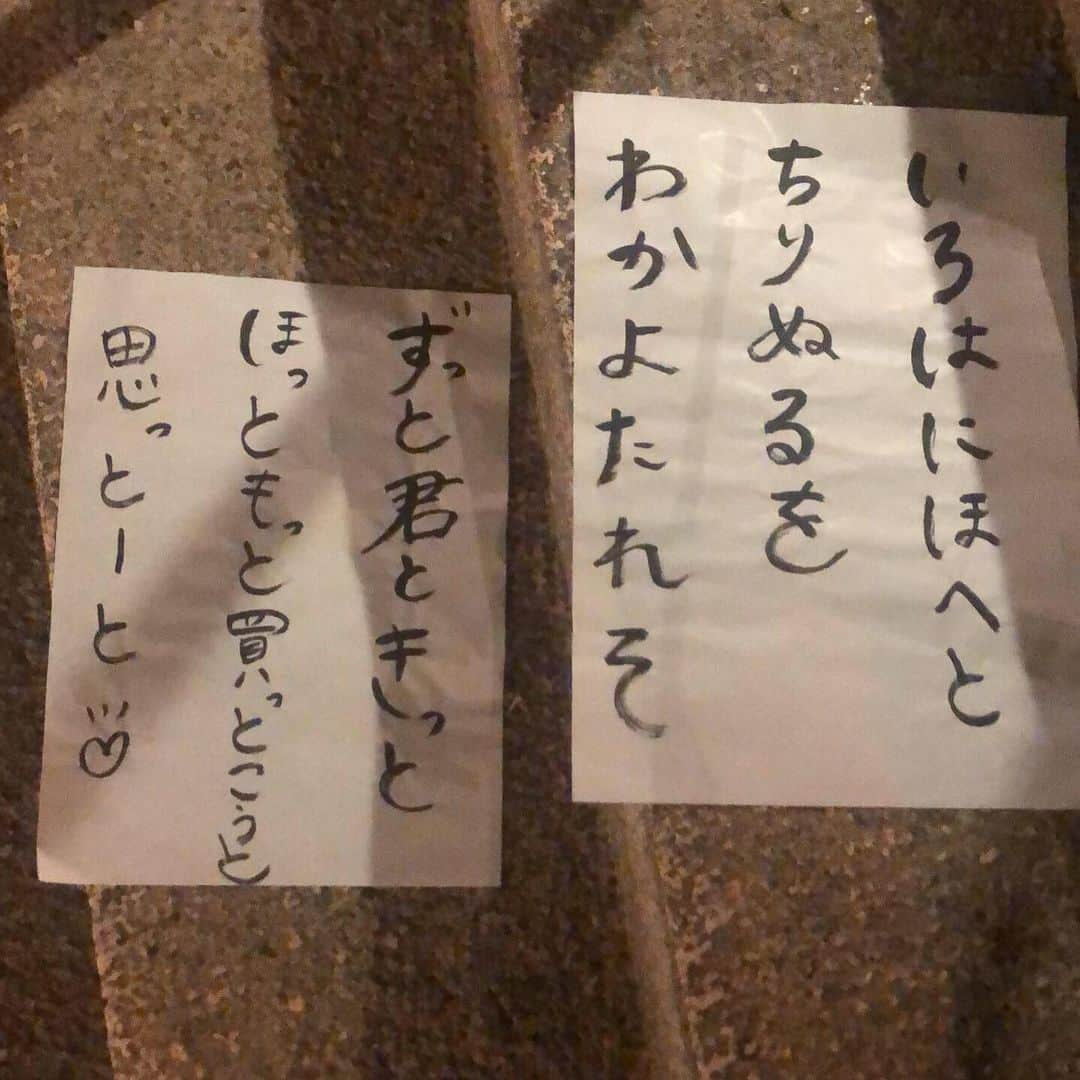 いろはにほへと
ちりぬるを
わかよたれそ
ずっと君とキっと
ほっともっと買っとこうと
思っとーと…♡